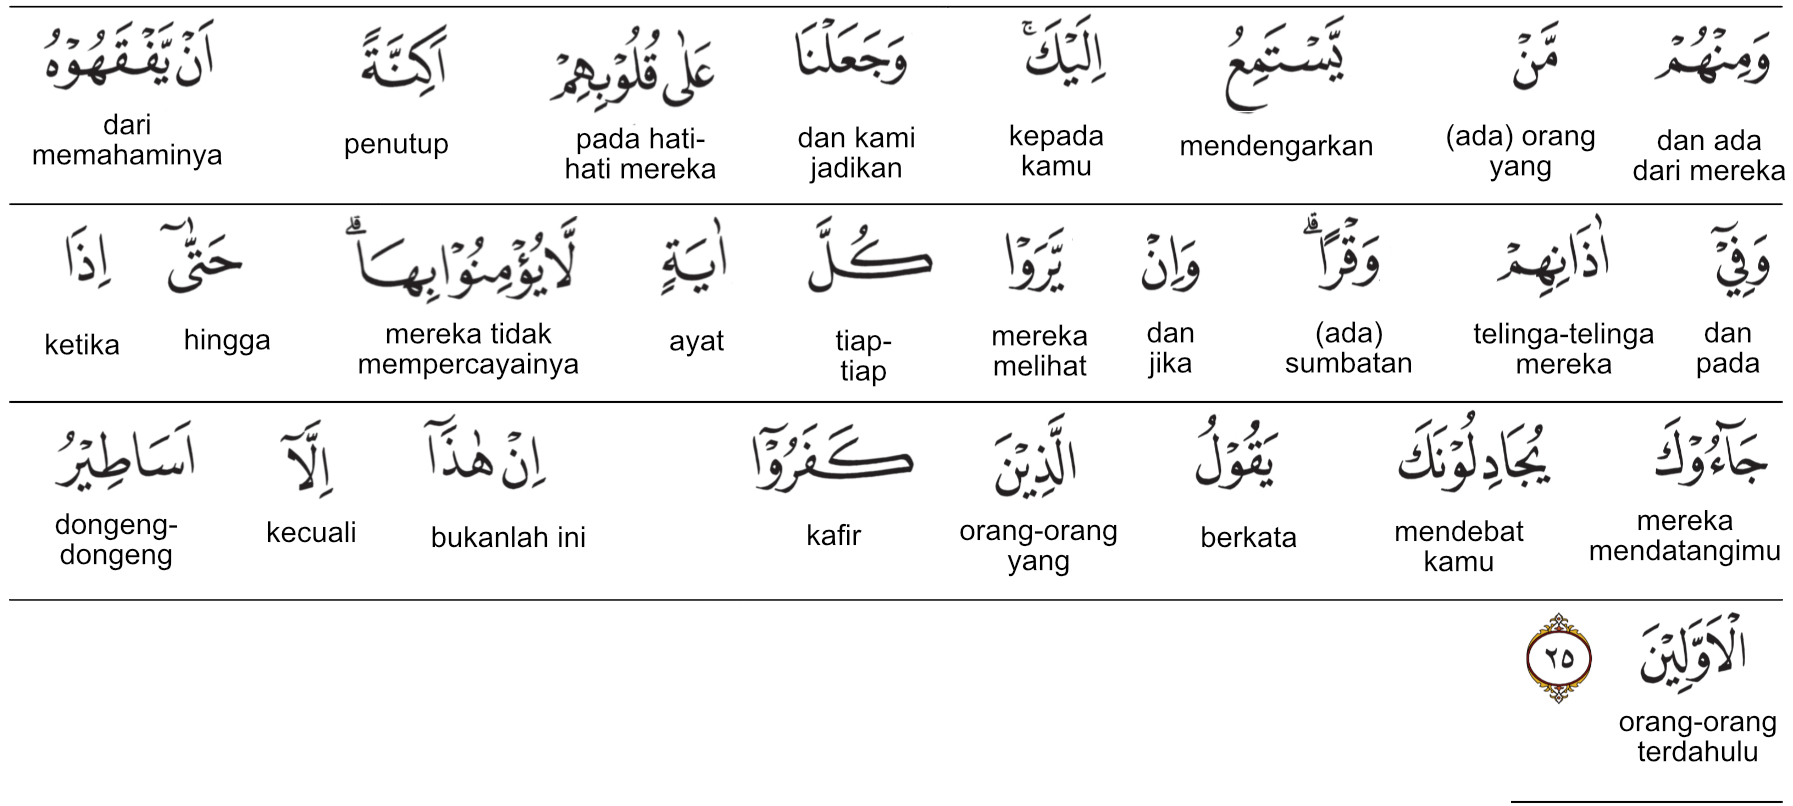 وَمِنْهُمْ مَّنْ يَّسْتَمِعُ اِلَيْكَۚ وَجَعَلْنَا عَلٰى قُلُوْبِهِمْ اَكِنَّةً اَنْ يَّفْقَهُوْهُ
dan ada dari mereka
(ada) orang yang
mendengarkan
kepada kamu
dan kami jadikan
pada hati-hati mereka
penutup
dari memahaminya
وَفِيْٓ اٰذَانِهِمْ وَقْرًاۗ وَاِنْ يَّرَوْا كُلَّ اٰيَةٍ لَّا يُؤْمِنُوْا بِهَاۗ حَتّٰٓى اِذَا
dan pada
telinga-telinga mereka
(ada) sumbatan
dan jika
mereka melihat
tiap-tiap
ayat
mereka tidak mempercayainya
hingga
ketika
جَاۤءُوْكَ يُجَادِلُوْنَكَ يَقُوْلُ الَّذِيْنَ كَفَرُوْٓا اِنْ هٰذَآ اِلَّآ اَسَاطِيْرُ
mereka mendatangimu
mendebat kamu
berkata
orang-orang yang
kafir
bukanlah ini
kecuali
dongeng-dongeng
الْاَوَّلِيْنَ ٢٥
orang-orang terdahulu